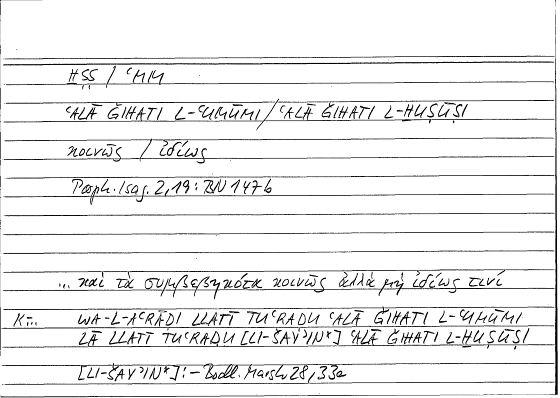 ḪṢṢ / ʿMM
ʿALĀ ǦIHATI L-ʿUMŪMI / ʿALĀ ǦIHATI L-ḪUṢŪṢI
κοινῶς / ἰδίως
Porph. Isag. 2,19: BN 147b
... καὶ τὰ συμβεβηκότα κοινῶς ἀλλὰ μὴ ἰδίως τινί
WA-L-AʿRĀḌI LLATĪ TUʿRAḌU ʿALĀ ǦIHATI L-ʿUMŪMI
LĀ LLATĪ TUʿRAḌU [LI-ŠAYʾIN*] ʿALĀ ǦIHATI L-ḪUṢŪṢI
[LI-ŠAYʾIN*]: – Bodl. Marsh 28, 33a